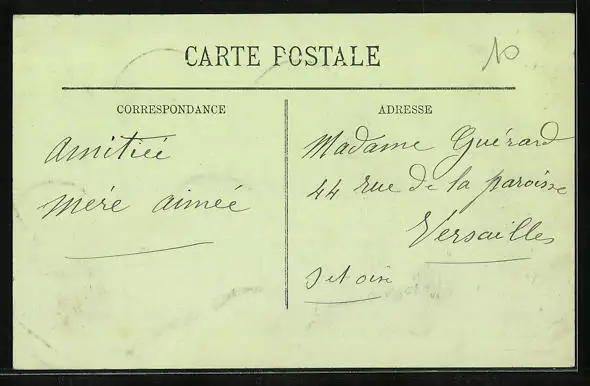 CARTE POSTALE
10
CORRESPONDANCE
Amitiée
mére aimée
ADRESSE
Madame Guérard
44 rue de la paroisse
Versailles
S et oise